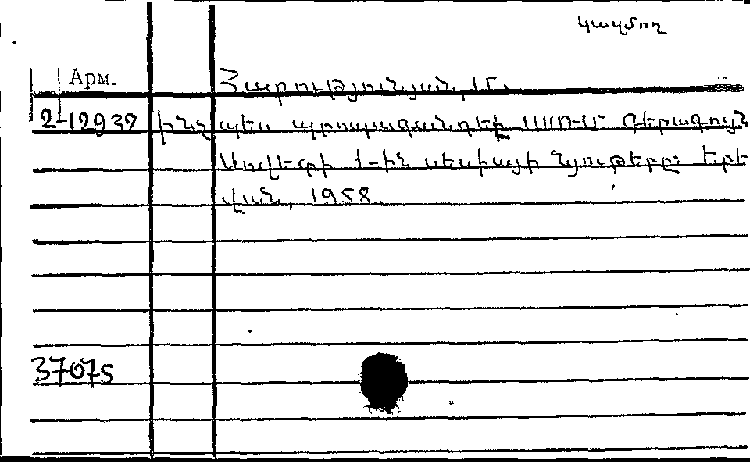 կազմող
Арм.
Հարությունյան, Մ.
2-12937 ինչպես պրոպագանդել ՍՍՌՄ Գերագույն
Սովետի 1-ին սեսիայի նյութերը: Երե
վան, 1958.
37075